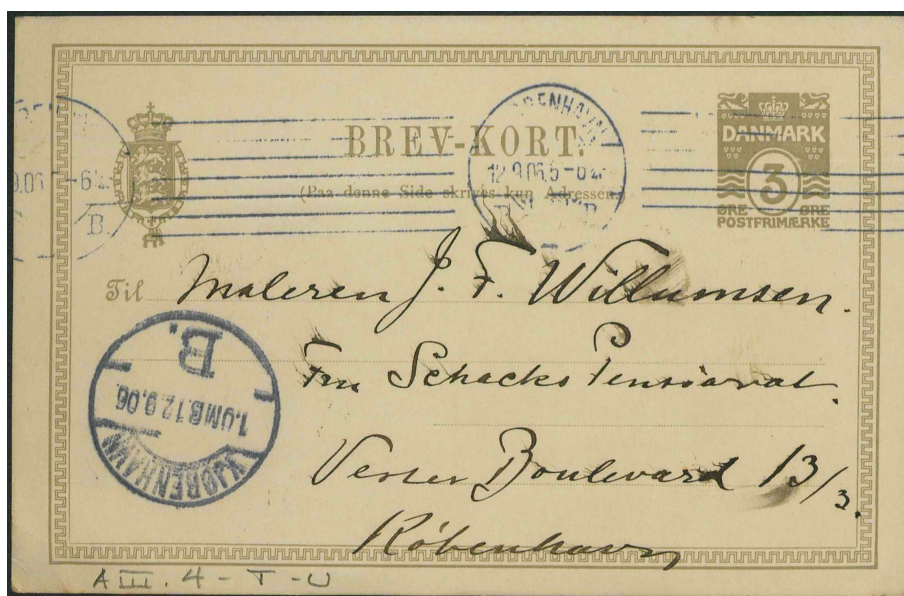 BREV-KORT.
(Paa denne Side skrives kun Adressen)
DANMARK
3
ØRE ØRE
POSTFRIMÆRKE
KØBENHAVN
12.9.06.5-6
B.
Til Maleren J. F. Willumsen.
Fru Schacks Pensionat.
Vester Boulevard 13/3.
København
B.
1.OMB.12.9.06
KJØBENHAVN
A III. 4 - T - U